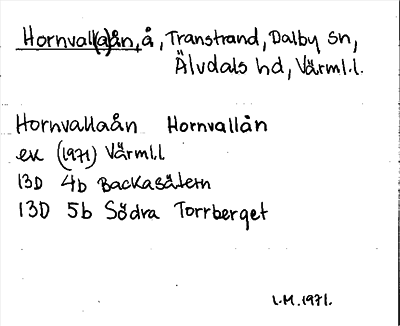 Hornvall(a)ån, å, Transtrand, Dalby sn,
Älvdals hd, Värml.l.
Hornvallaån Hornvallån
ek (1971) Värml.l
13D 4b Backasätern
13D 5b Södra Torrberget
L.M.1971.